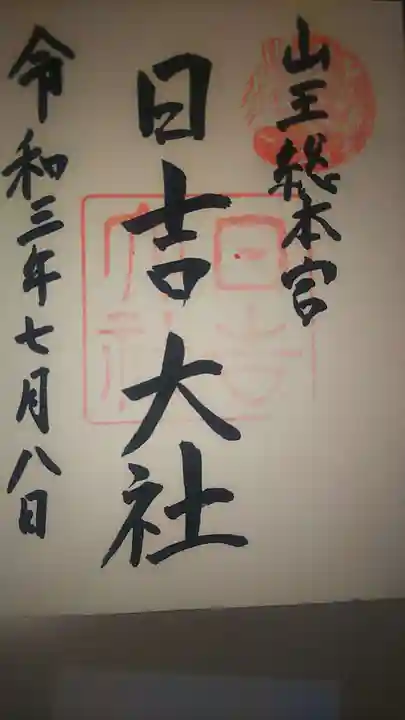 山王総本宮
日吉大社
日吉大社
令和三年七月八日